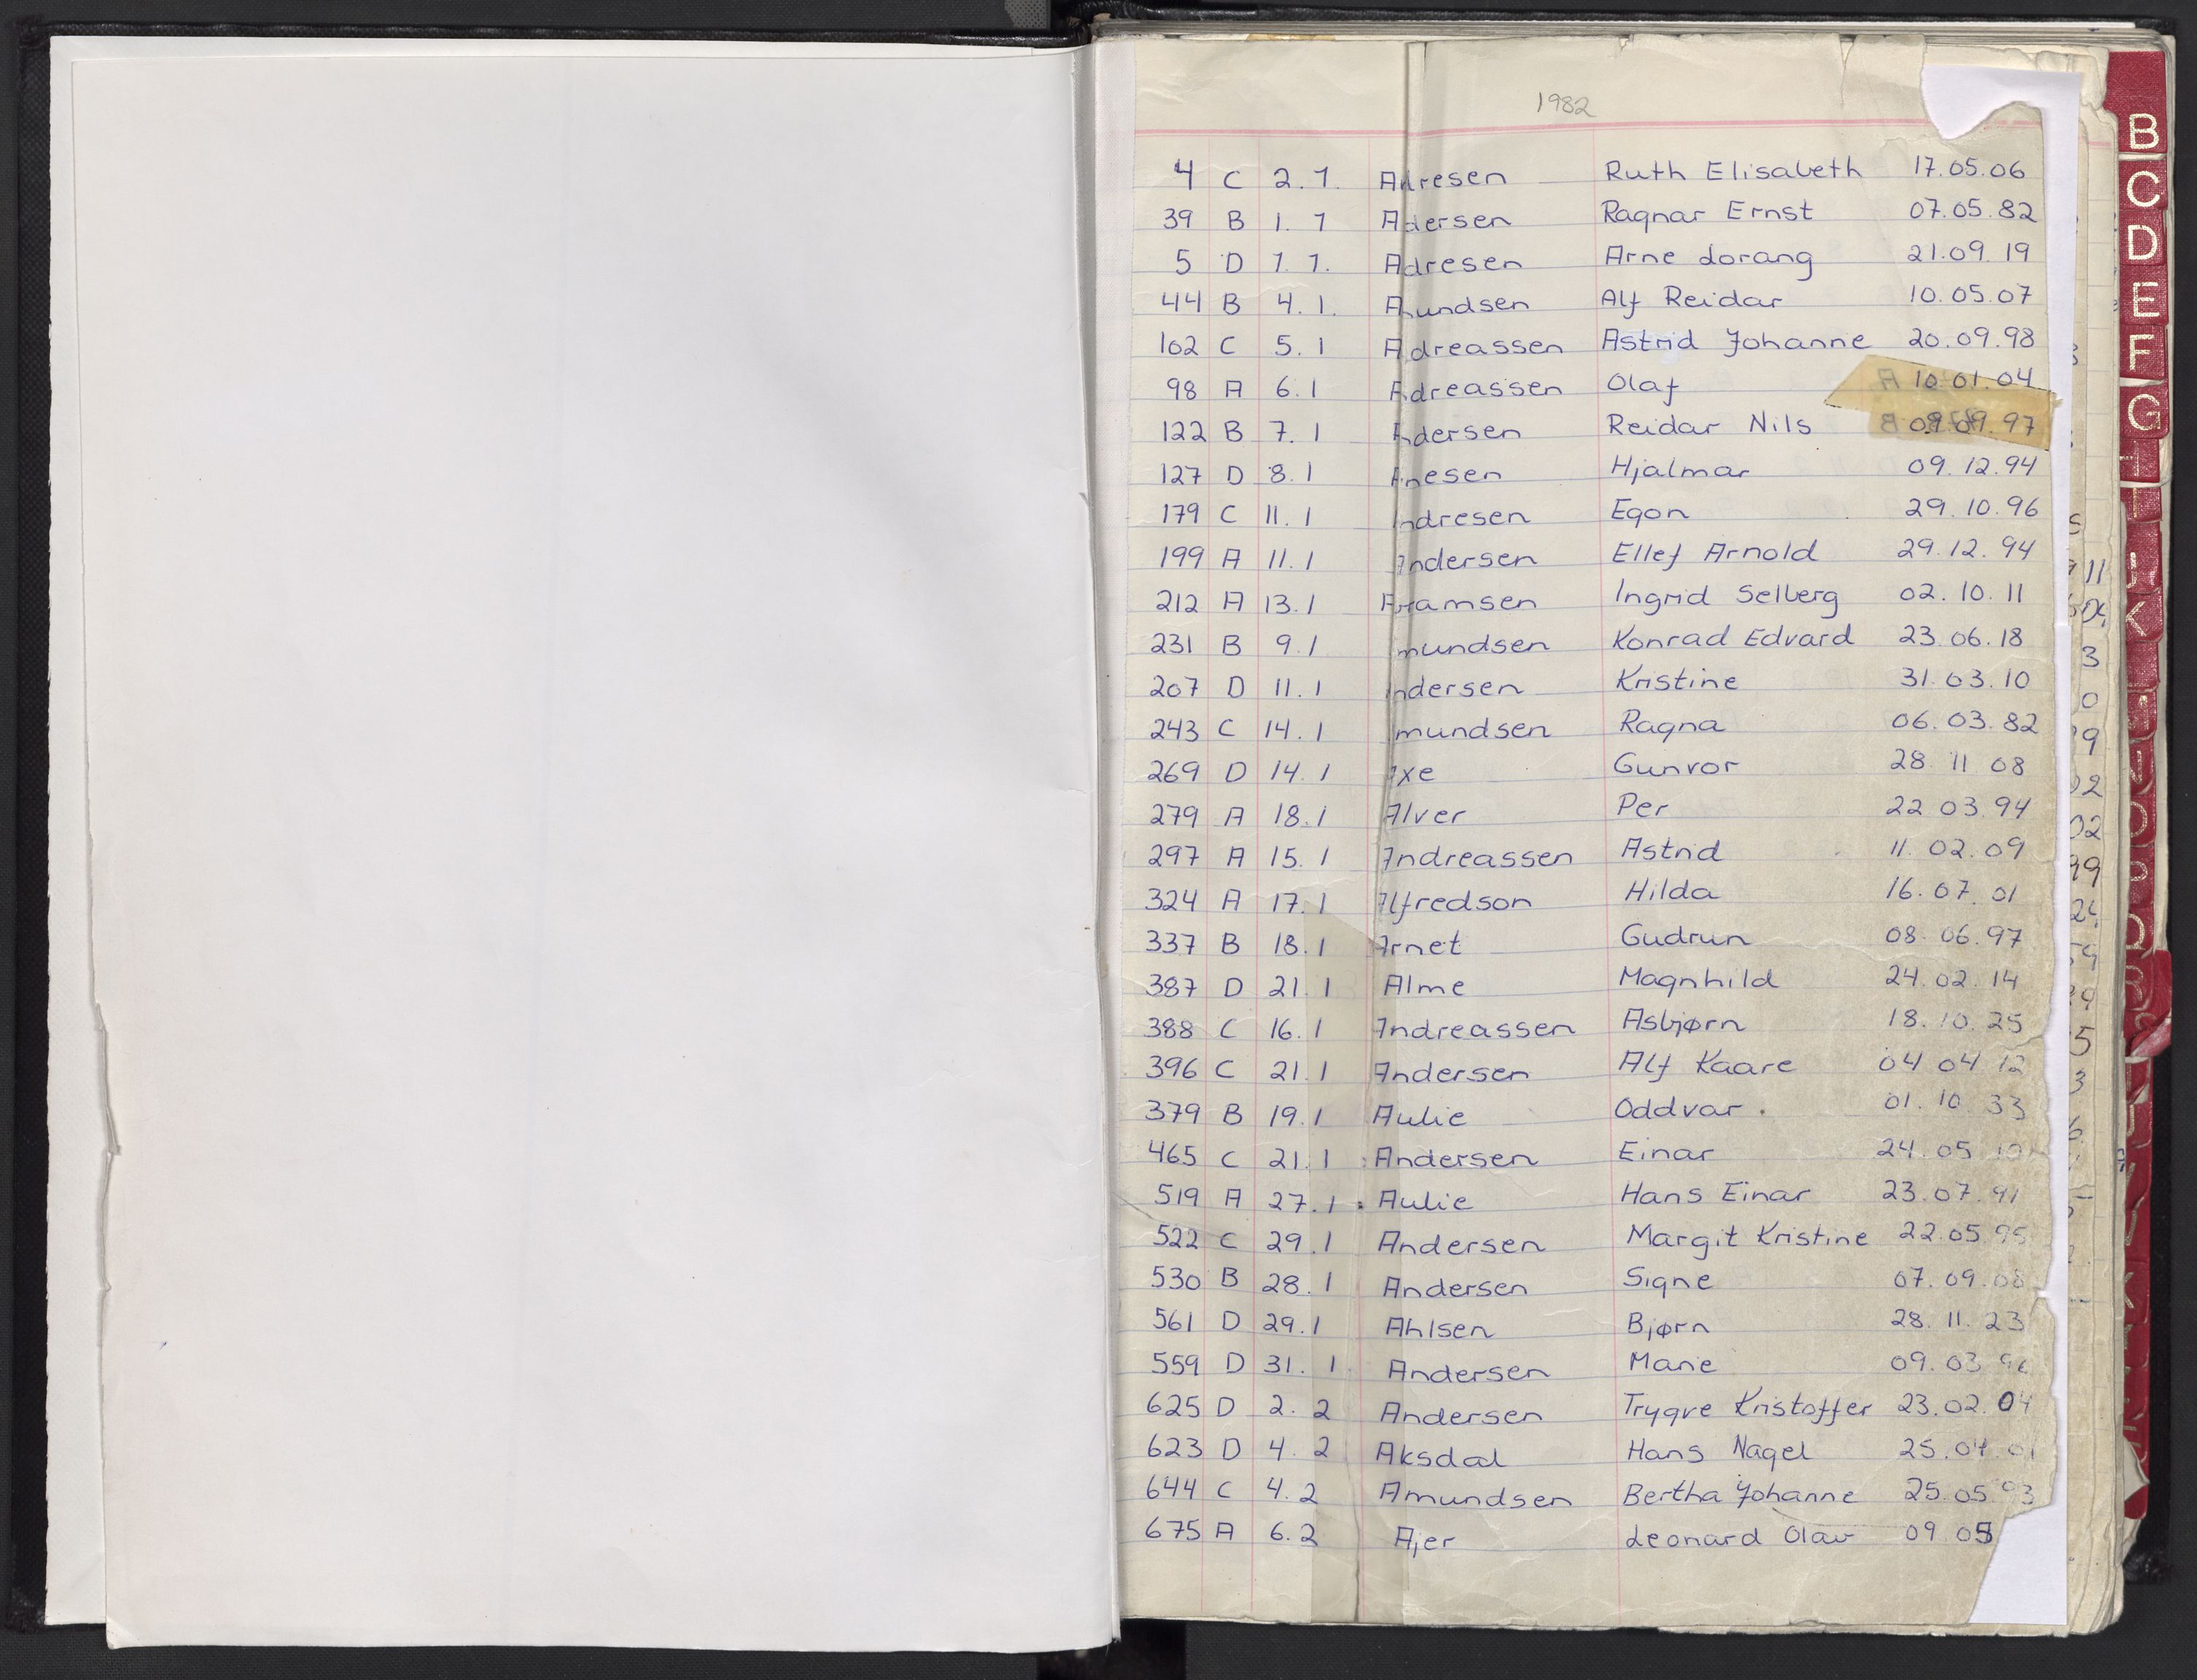 1982
4 C 2.1. Andresen Ruth Elisabeth 17.05.06
39 B 1.1 Andersen Ragnar Ernst 07.05.82
5 D 1.1. Andresen Arne Lorang 21.09.19
44 B 4.1. Amundsen Alf Reidar 10.05.07
102 C 5.1 Andreassen Astrid Johanne 20.09.98
98 A 6.1 Andreassen Olaf 10.01.04
122 B 7.1 Andersen Reidar Nils 09.09.97
127 D 8.1 Hjalmar 09.12.94
179 C 11.1 Andresen Egon 29.10.96
199 A 11.1 Andersen Ellef Arnold 29.12.94
212 A 13.1 Ingrid Selberg 02.10.11
231 B 9.1 Amundsen Konrad Edvard 23.06.18
207 D 11.1 Andersen Kristine 31.03.10
243 C 14.1 Amundsen Ragna 06.03.82
269 D 14.1 Axe Gunvor 28 11 08
279 A 18.1 Alver Per 22 03.94
297 A 15.1 Andreassen Astrid 11.02.09
324 A 17.1 Alfredson Hilda 16.07.01
337 B 18.1 Arnet Gudrun 08.06.97
387 D 21.1 Alme Magnhild 24.02.14
388 C 16.1 Andreassen Asbjørn 18.10.25
396 C 21.1 Andersen Alf Kaare 04 04 12
379 B 19.1 Aulie Oddvar. 01.10 33
465 C 21.1 Andersen Einar 24.05 10
519 A 27.1 Aulie Hans Einar 23.07.91
522 C 29.1 Andersen Margit Kristine 22.05.95
530 B 28.1 Andersen Signe 07.09.08
561 D 29.1 Ahlsen Bjørn 28.11.23
559 D 31.1 Andersen Marie 09.03
625 D 2.2 Andersen Trygve Kristoffer 23.02.04
623 D 4.2 Aksdal Hans Nagel 25.04.01
644 C 4.2 Amundsen Bertha Johanne 25.05.93
675 A 6.2 Ajer Leonard Olav 09 05
B
C
D
E
F
G
H
I
J
K